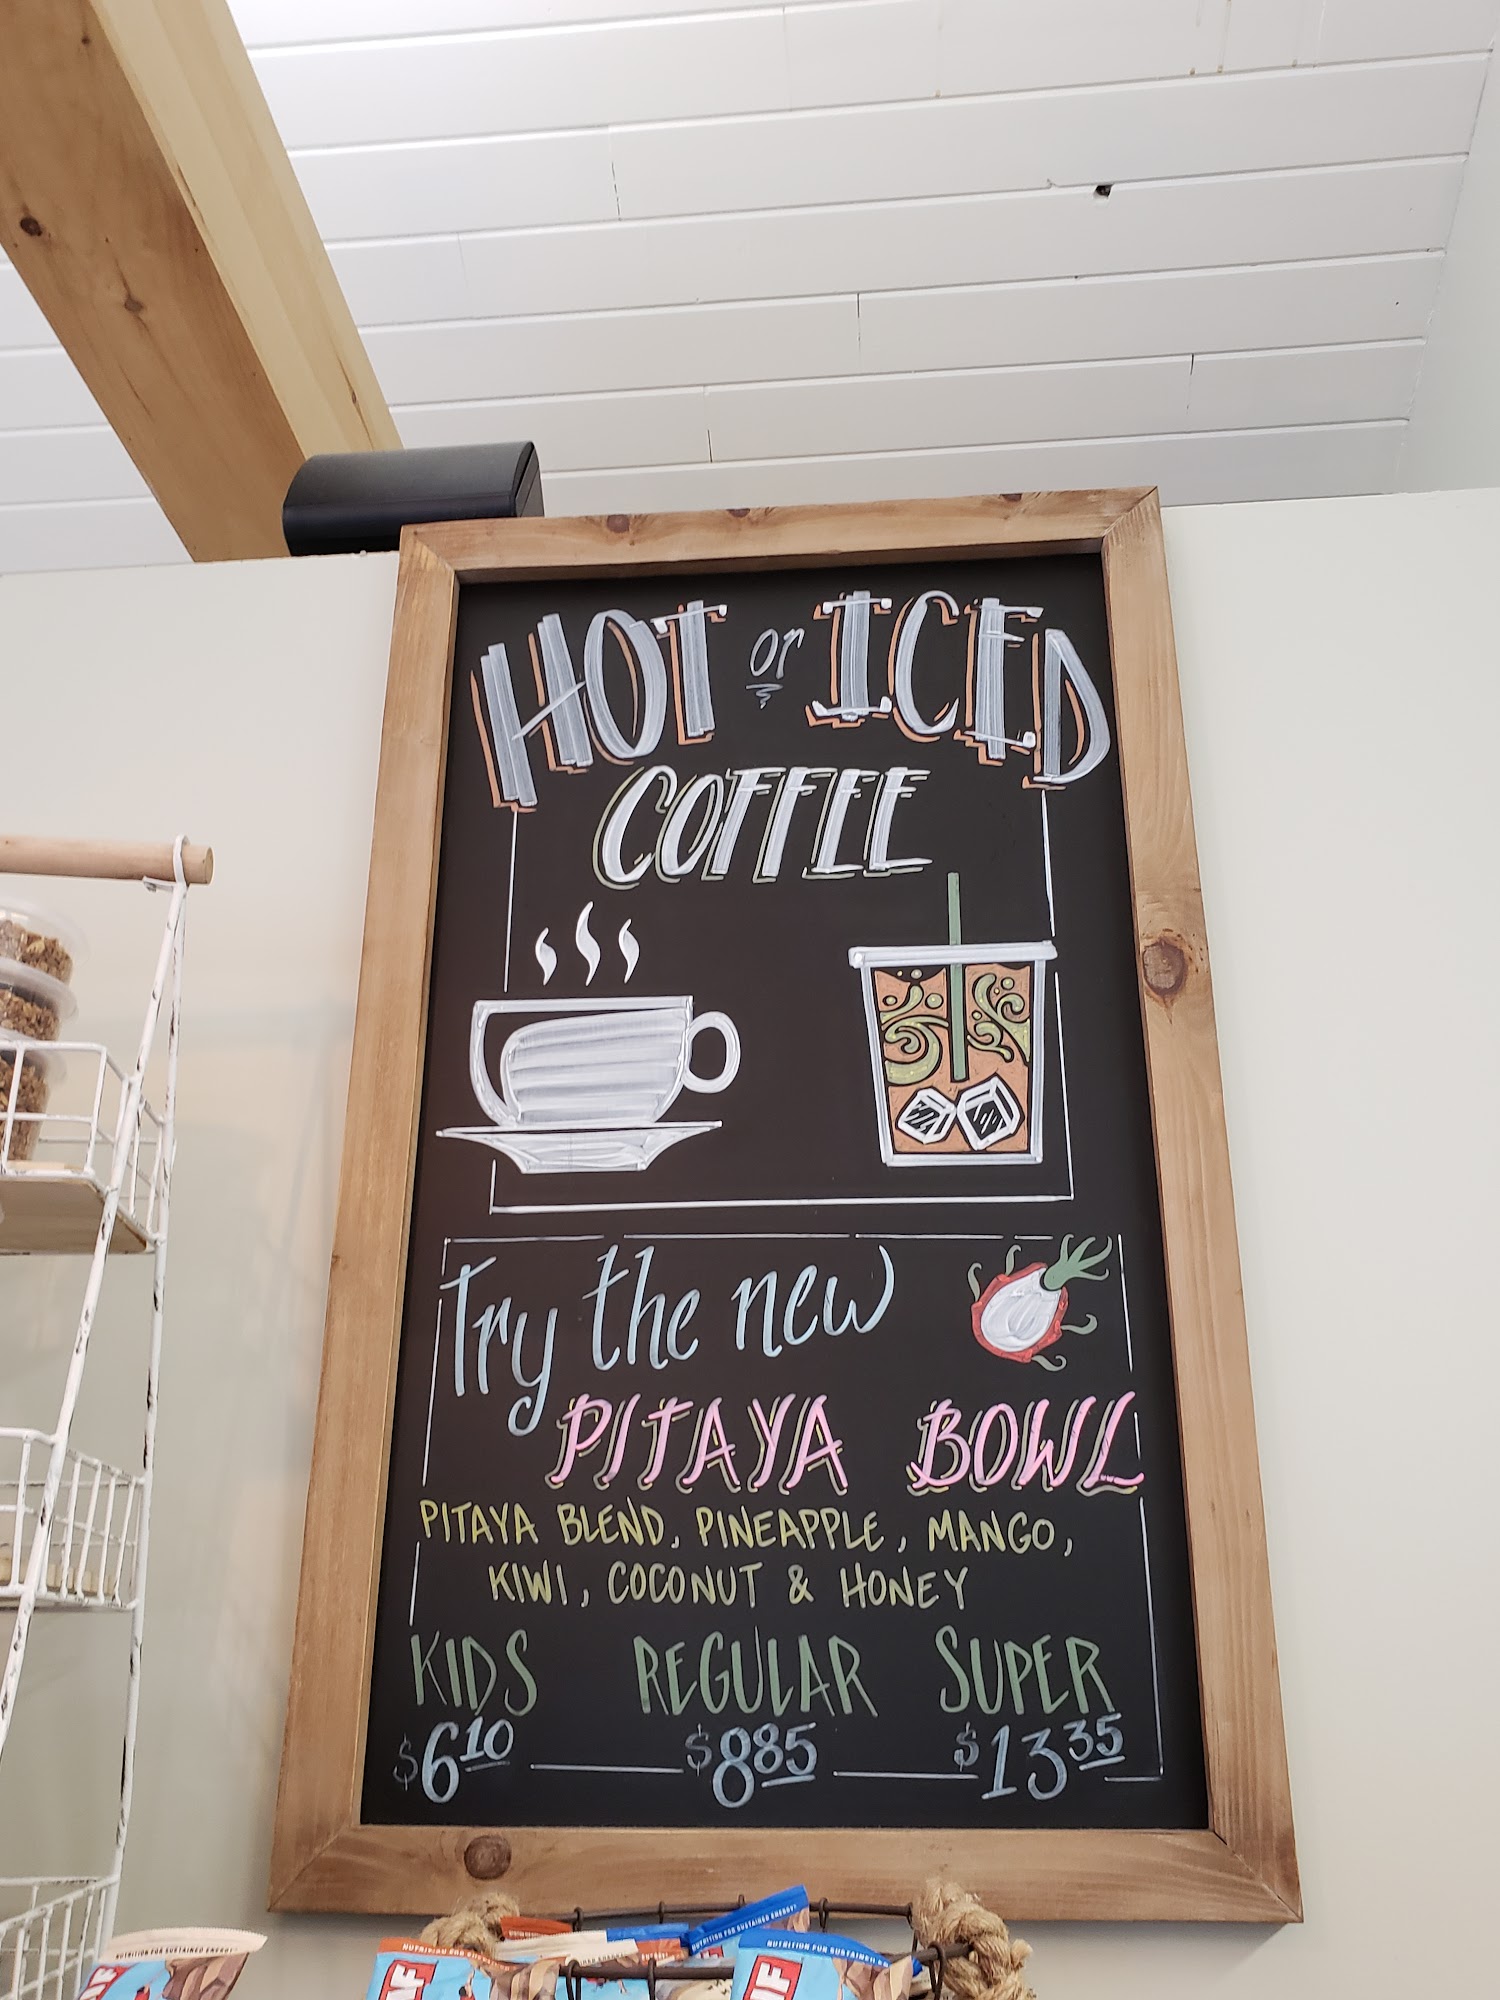 HOT or ICED
COFFEE
Try the new
PITAYA BOWL
PITAYA BLEND, PINEAPPLE, MANGO,
KIWI, COCONUT & HONEY
KIDS REGULAR SUPER
$610 $885 $1335
NUTRITION FOR SUSTAINED ENERGY!
NUTRITION FOR SUSTAINED